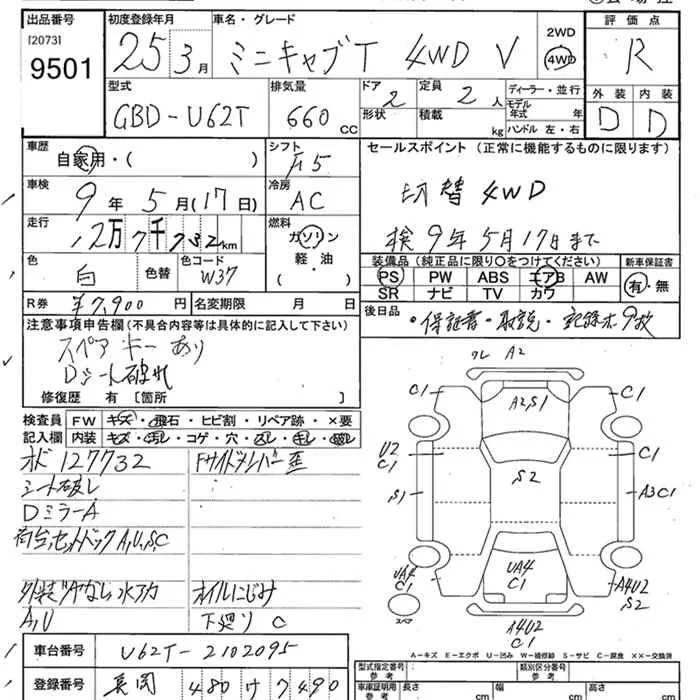 出品番号 初度登録年月 車名・グレード 評価点
[2073]
9501
25年3月 ミニキャブT 4WD V 2WD 4WD R
型式 排気量 ドア 定員 ディーラー・並行 外装 内装
GBD-U62T 660cc 2 2人 モデル年式 年 D D
形状 積載 kg ハンドル 左・右
車歴 シフト セールスポイント (正常に機能するものに限ります)
自家用・( ) F5
車検 冷房 切替4WD
9年5月(17日) AC
走行 燃料 検9年5月17日まで
12万7千732km ガソリン
軽・油
( )
色 色替 色コード
白 W37
装備品 (純正品に限り○をつけてください) 新車保証書
PS PW ABS エアB AW 有・無
SR ナビ TV カワ
R券 ¥7,900円 名変期限 月 日
後日品 ・保証書・取説・記録ボ9枚
注意事項申告欄 (不具合内容等は具体的に記入して下さい)
スペアキーあり
Dシート破れ
修復歴 有 [箇所 ]
検査員 FW キズ・飛石・ヒビ割・リペア跡・×要
記入欄 内装 キズ・汚レ・コゲ・穴
オド127732 Fサイドメンバー歪
シート破レ
DミラーA
荷台,セットバックA,U,S,C
外装ツヤなし水アカ オイルにじみ
A,U 下廻りC
車台番号 U62T-2102095
登録番号 長岡 480け7490
クレ A2
C1 A2,S1 C1
U2
C1 S2 C1
S1 A3C1
UA4
C1
UA4
C1 A4U2
S2
スペア
A4U2
C1
A-キズ E-エクボ U-凹み W-補修跡 S-サビ C-腐食 XX-交換済
型式指定番号 類別区分番号
参考 参考
車庫証明用 長さ 幅 高さ
参考 cm cm cm